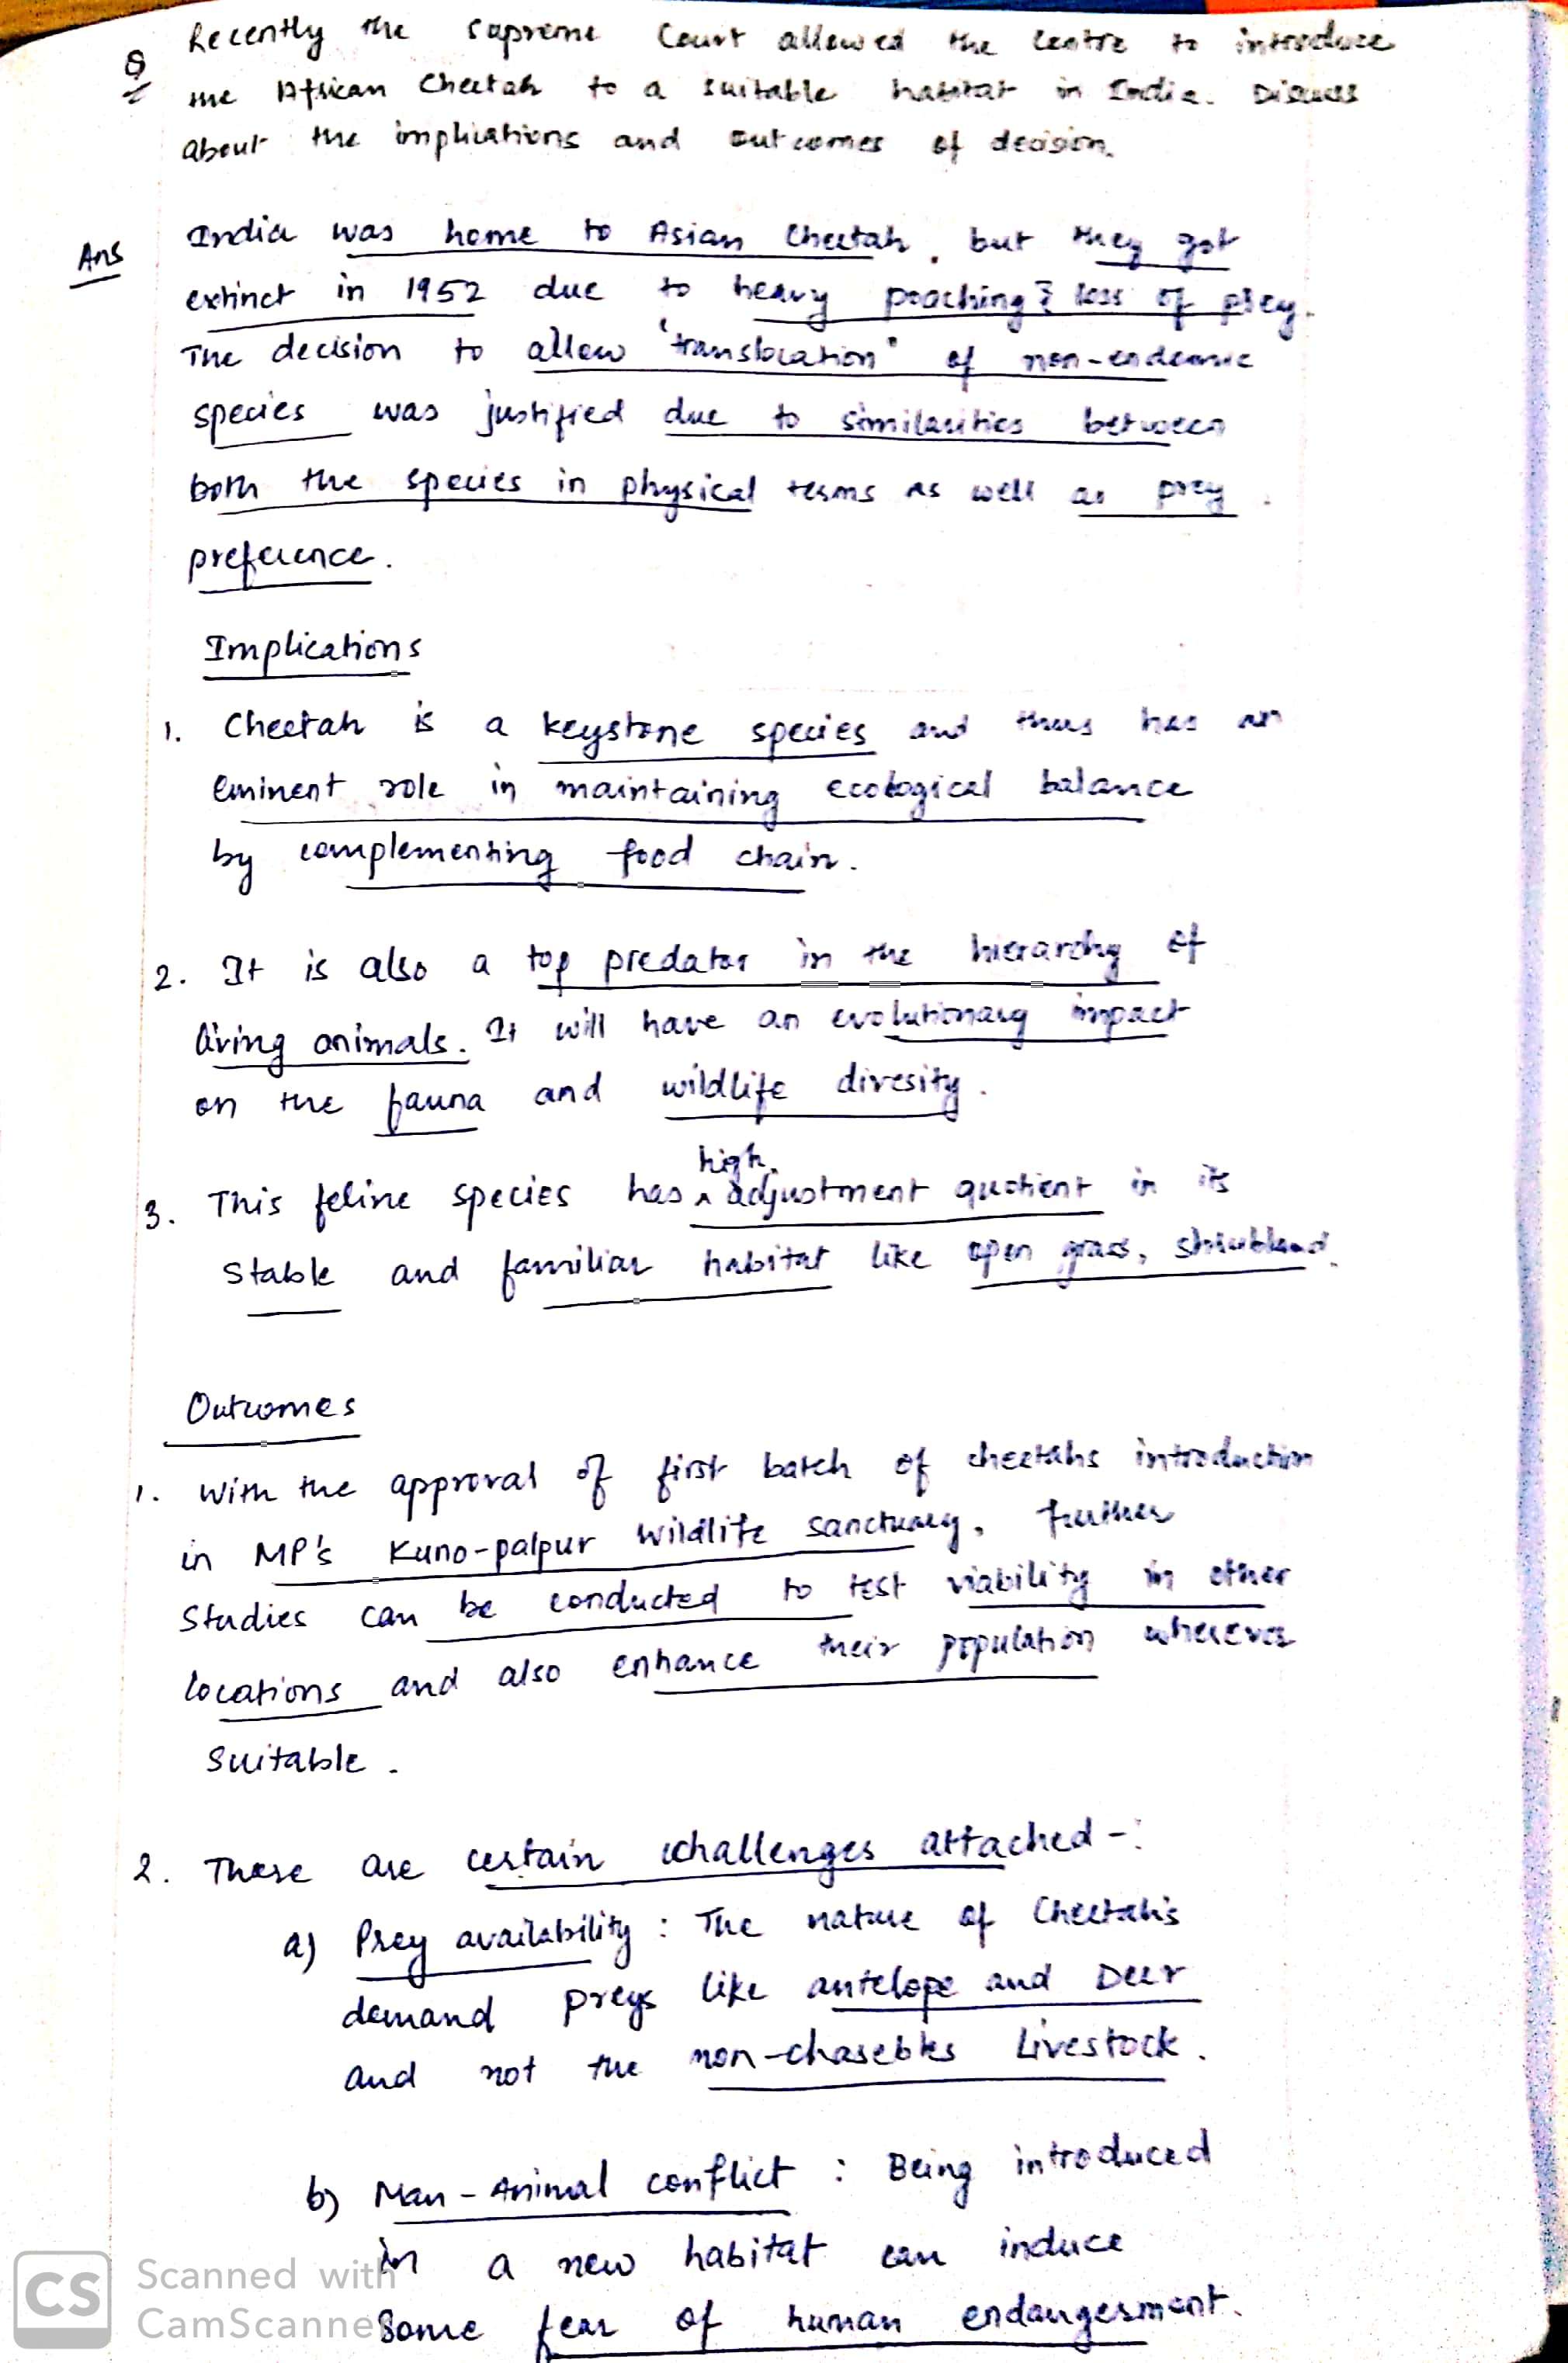 Q Recently the Supreme Court allowed the Centre to introduce
the African Cheetah to a suitable habitat in India. Discuss
about the implications and outcomes of decision.
Ans India was home to Asian Cheetah, but they got
extinct in 1952 due to heavy poaching & loss of prey.
The decision to allow 'translocation' of non-endemic
species was justified due to similarities between
both the species in physical terms as well as prey
preference.
Implications
1. Cheetah is a keystone species and thus has an
eminent role in maintaining ecological balance
by complementing food chain.
2. It is also a top predator in the hierarchy of
living animals. It will have an evolutionary impact
on the fauna and wildlife divesity.
high
3. This feline species has ^ adjustment quotient in its
stable and familiar habitat like open grass, shrubland.
Outcomes
1. With the approval of first batch of cheetahs introduction
in MP's Kuno-palpur wildlife sanctuary, further
studies can be conducted to test viability in other
locations and also enhance their population wherever
suitable.
2. There are certain challenges attached -:
a) Prey availability : The nature of Cheetah's
demand preys like antelope and Deer
and not the non-chasebles Livestock.
b) Man-Animal conflict : Being introduced
in a new habitat can induce
some fear of human endangerment.
CS Scanned with
CamScanner